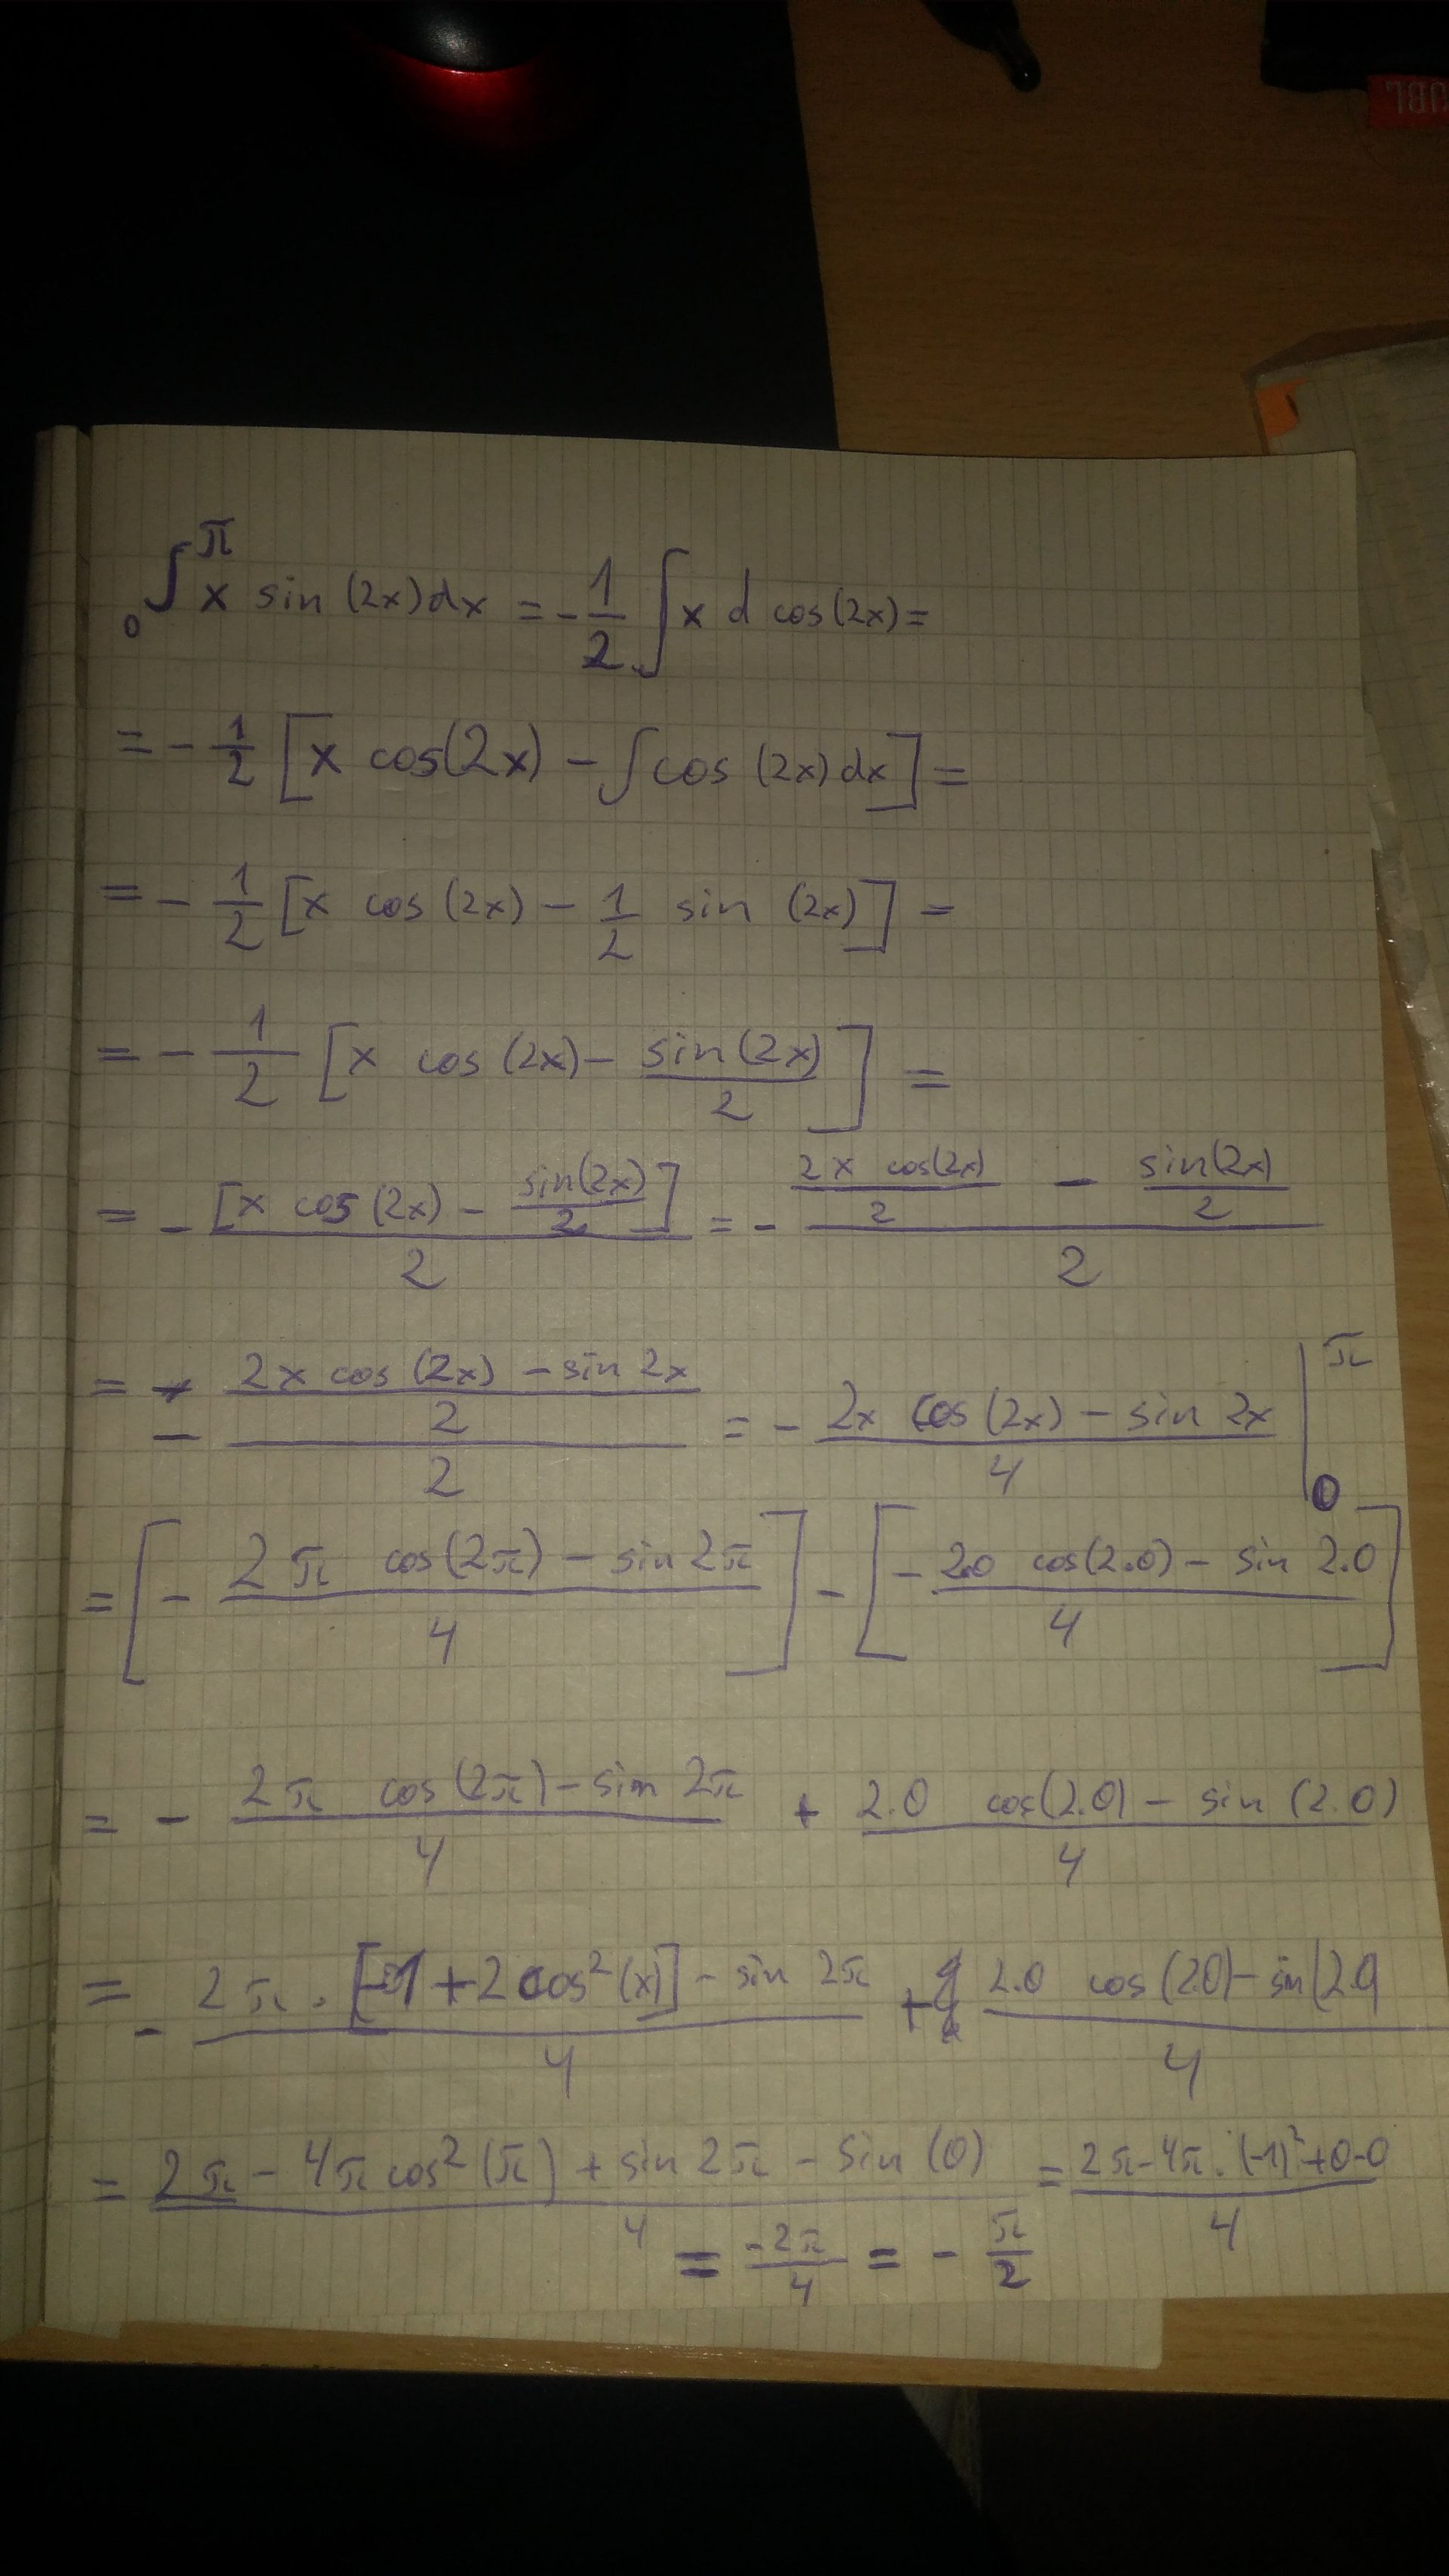 JBL
₀∫^π x sin (2x) dx = - 1/2 ∫ x d cos(2x) =
= - 1/2 [x cos(2x) - ∫ cos (2x) dx] =
= - 1/2 [x cos (2x) - 1/2 sin (2x)] =
= - 1/2 [x cos (2x) - sin(2x)/2] =
= - [x cos (2x) - sin(2x)/2]/2 = - (2x cos(2x)/2 - sin(2x)/2)/2
= - ((2x cos (2x) - sin 2x)/2)/2 = - (2x cos (2x) - sin 2x)/4 |₀^π
= [- (2π cos(2π) - sin 2π)/4] - [- (2.0 cos(2.0) - sin 2.0)/4]
= - (2π cos(2π) - sin 2π)/4 + (2.0 cos(2.0) - sin (2.0))/4
= - (2π . [-1 + 2 cos²(x)] - sin 2π)/4 + (2.0 cos (2.0) - sin(2.0))/4
= (2π - 4π cos² (π) + sin 2π - sin (0))/4 = (2π - 4π . (-1)² + 0 - 0)/4
= -2π/4 = - π/2